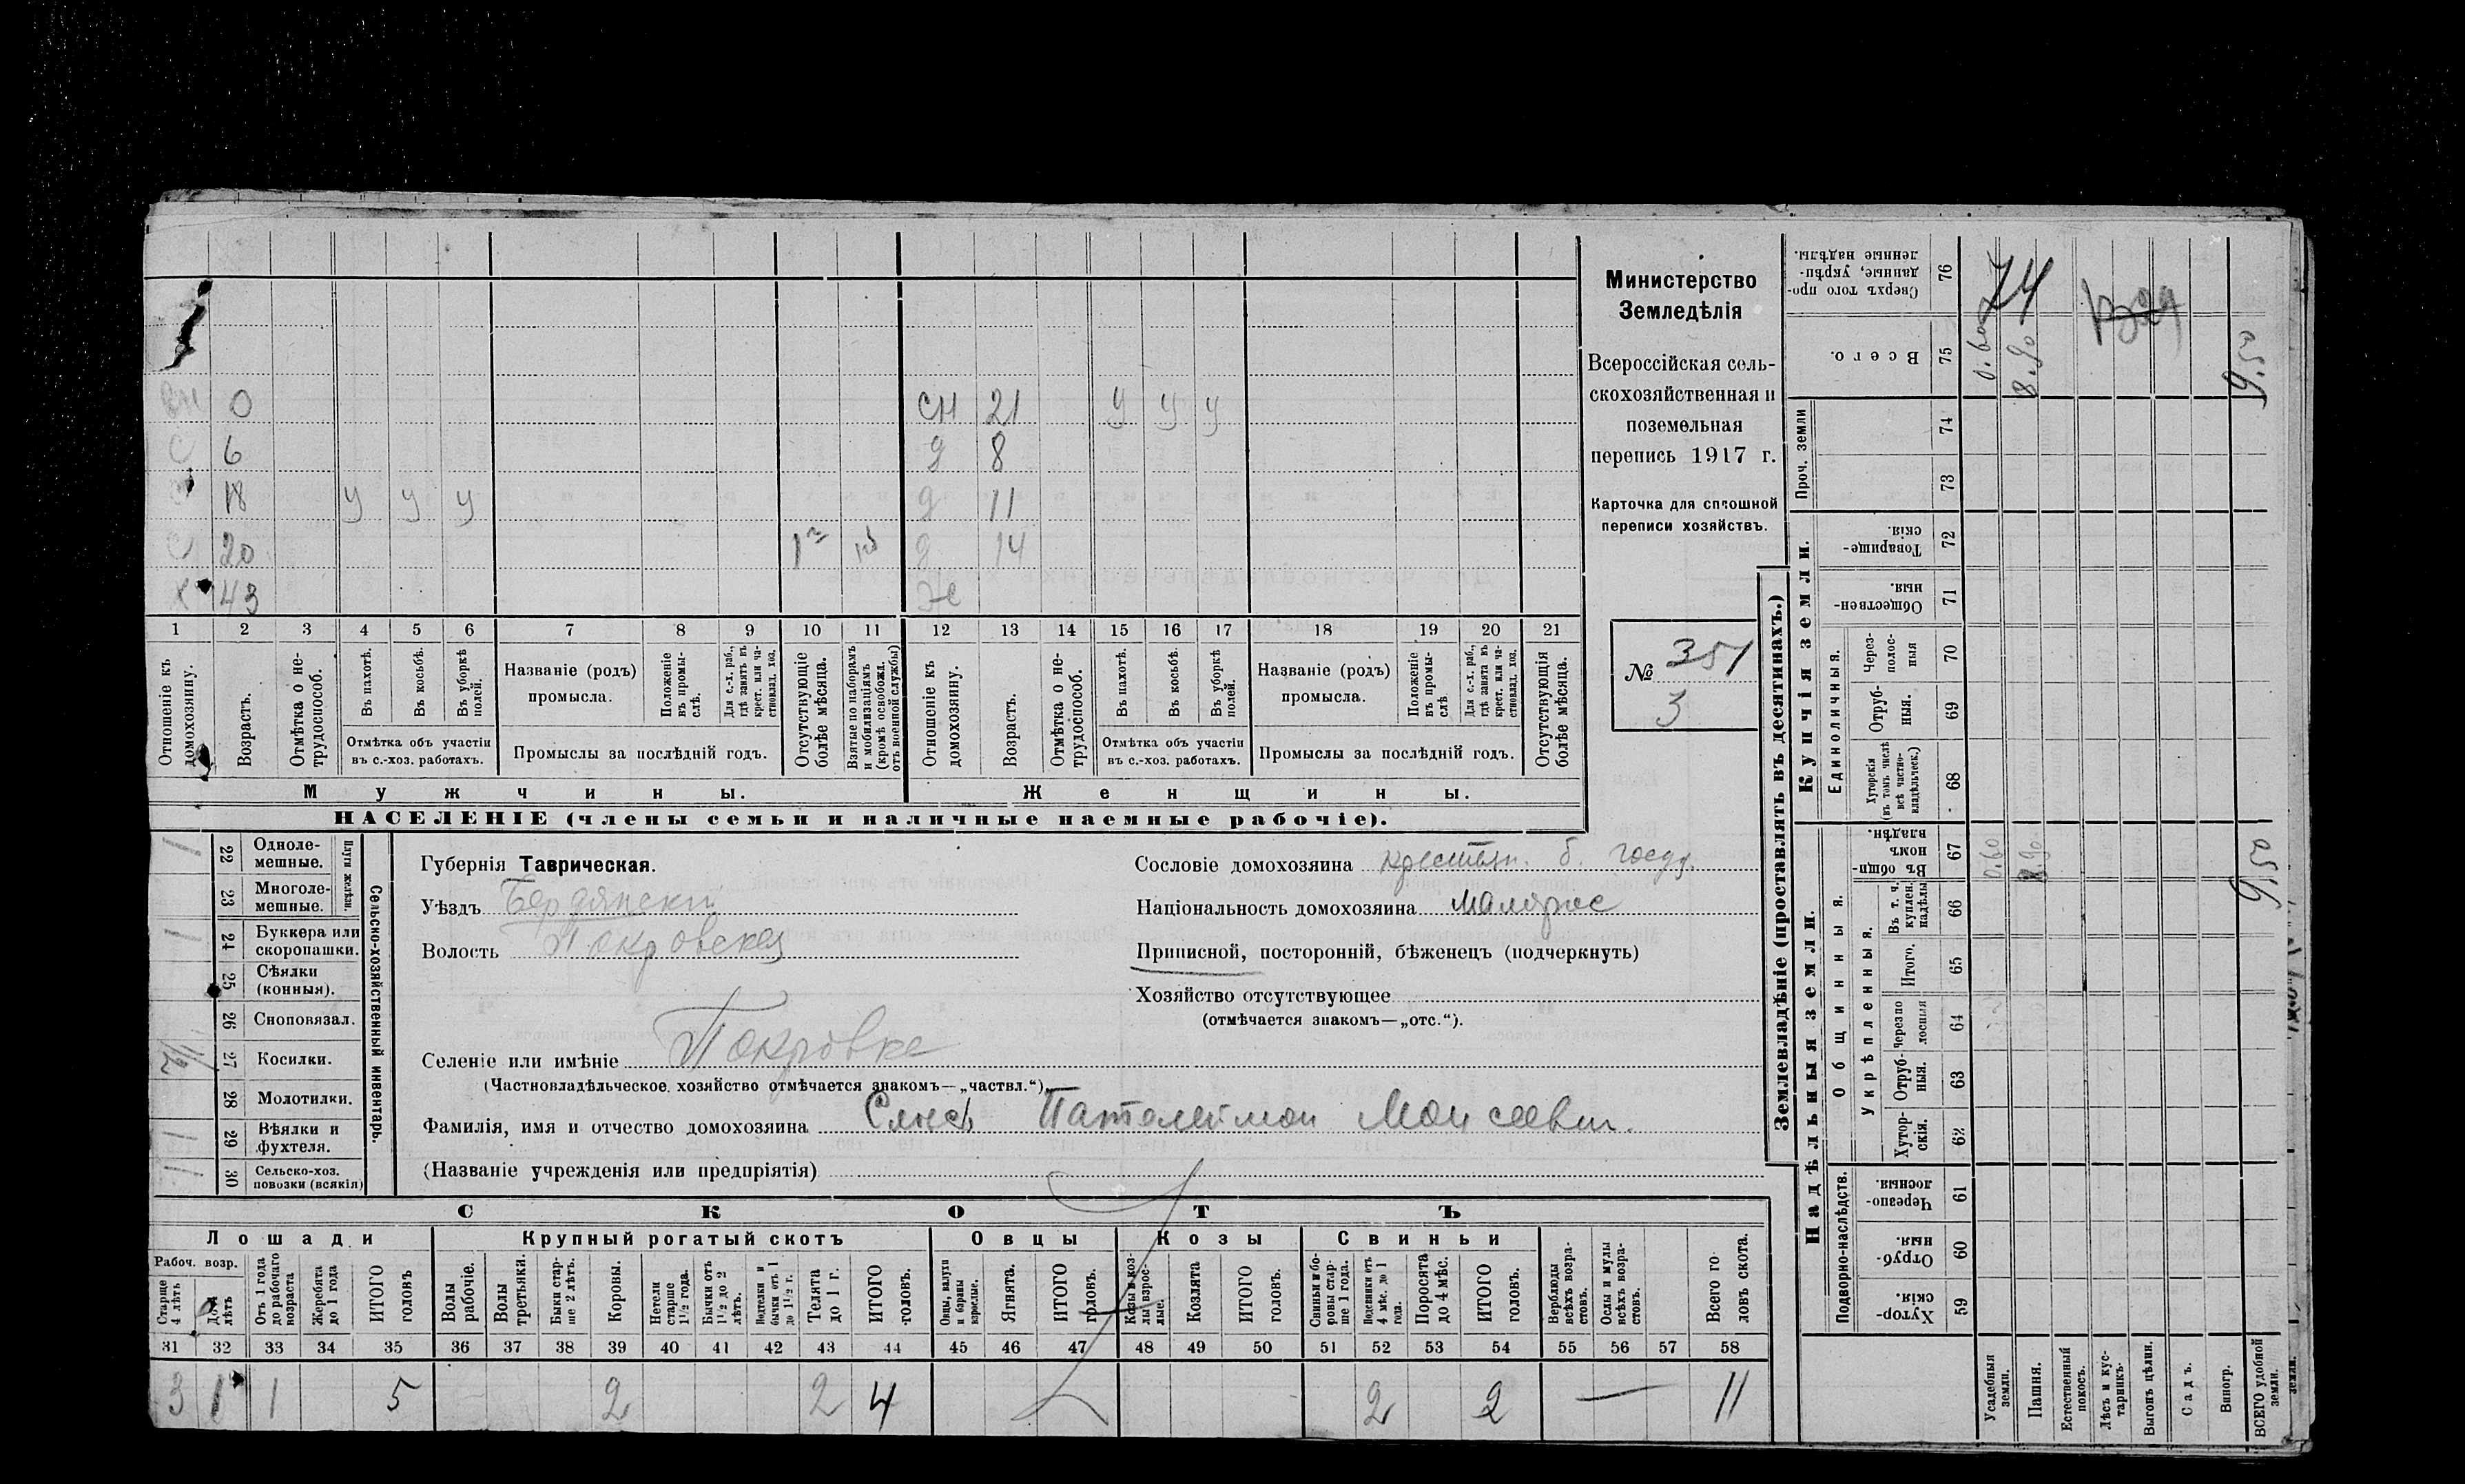 Министерство
Земледѣлія
Всероссійская сель-
скохозяйственная и
поземельная
перепись 1917 г.
Карточка для сплошной
переписи хозяйствъ.
№ 351
3
0
СН 21 У У У
С 6
д 8
18 У У У
д 11
С 20
д 14
Х 43
Ж
1 2 3 4 5 6 7 8 9 10 11 12 13 14 15 16 17 18 19 20 21
Отношеніе къ домохозяину.
Возрастъ.
Отмѣтка о не-трудоспособ.
Въ пахотѣ.
Въ косьбѣ.
Въ уборкѣ полей.
Отмѣтка объ участіи
въ с.-хоз. работахъ.
Названіе (родъ)
промысла.
Положеніе въ промы-слѣ.
Для с.-х. раб., гдѣ занятъ въ крест. или ча-стновлад. хоз.
Промыслы за послѣдній годъ.
Отсутствующіе болѣе мѣсяца.
Взятые по наборамъ и мобилизаціямъ (кромѣ освобожд. отъ военной службы)
Отношеніе къ домохозяину.
Возрастъ.
Отмѣтка о не-трудоспособ.
Въ пахотѣ.
Въ косьбѣ.
Въ уборкѣ полей.
Отмѣтка объ участіи
въ с.-хоз. работахъ.
Названіе (родъ)
промысла.
Положеніе въ промы-слѣ
Для с.-х. раб., гдѣ занята въ крест. или ча-стновлад. хоз.
Промыслы за послѣдній годъ.
Отсутствующія болѣе мѣсяца.
Мужчины.
Женщины.
НАСЕЛЕНІЕ (члены семьи и наличные наемные рабочіе).
Сельско-хозяйственный инвентарь.
Плуги желѣзн.
22 Однолемешные.
23 Многолемешные.
24 Буккера или скоропашки.
25 Сѣялки (конныя).
26 Сноповязал.
27 Косилки.
28 Молотилки.
29 Вѣялки и фухтеля.
30 Сельско-хоз. повозки (всякія)
Губернія Таврическая.
Уѣздъ Бердянски
Волость Покровская
Селеніе или имѣніе Покровка
(Частновладѣльческое хозяйство отмѣчается знакомъ—„частвл.“)
Фамилія, имя и отчество домохозяина Пателеймон Моисеевич.
(Названіе учрежденія или предпріятія)
Сословіе домохозяина крестьян. б. госуд.
Національность домохозяина Малорос
Приписной, посторонній, бѣженецъ (подчеркнуть)
Хозяйство отсутствующее
(отмѣчается знакомъ—„отс.“).
СКОТЪ
Лошади
Крупный рогатый скотъ
Овцы
Козы
Свиньи
Рабоч. возр.
Старше 4 лѣтъ
До 4 лѣтъ
Отъ 1 года до рабочаго возраста
Жеребята до 1 года
ИТОГО головъ
Волы рабочіе.
Волы третьяки.
Быки стар-ше 2 лѣтъ.
Коровы.
Нетели старше 1½ года.
Бычки отъ 1½ до 2 лѣтъ.
Подтелки и бычки отъ 1 до 1½ г.
Телята до 1 г.
ИТОГО головъ.
Овцы, валухи и бараны взрослые.
Ягнята.
ИТОГО головъ.
Козы и коз-лы взрос-лые.
Козлята
ИТОГО головъ.
Свиньи и бо-ровы стар-ше 1 года.
Подсвинки отъ 4 мѣс. до 1 года.
Поросята до 4 мѣс.
ИТОГО головъ.
Верблюды всѣхъ возра-стовъ.
Ослы и мулы всѣхъ возра-стовъ.
Всего го ловъ скота.
31 32 33 34 35 36 37 38 39 40 41 42 43 44 45 46 47 48 49 50 51 52 53 54 55 56 57 58
3 1 1 5 2 2 4 2 2 — 11
Землевладѣніе (проставлять въ десятинахъ.)
Надѣльныя земли.
Купчія земли.
Проч. земли
Общинныя.
Укрѣпленныя.
Подворно-наслѣдств.
Единоличныя.
Сверхъ того про-данные, укрѣп-ленные надѣлы. 76
Всего. 75
74
73
Товарище-скія. 72
Обществен-ныя. 71
Через-полос-ныя 70
Отруб-ныя. 69
Хуторскія (въ томъ числѣ всѣ частно-владѣльческ.) 68
Въ общи-номъ владѣн. 67
Въ т. ч. куплен. надѣлы 66
Итого. 65
Черезпо лосныя 64
Отруб-ныя. 63
Хутор-скія. 62
Черезпо-лосныя. 61
Отруб-ныя. 60
Хутор-скія. 59
Усадебныя земли.
Пашня.
Естественный покосъ.
Лѣсъ и кус-тарникъ.
Выгонъ цѣлин.
Садъ.
Виногр.
ВСЕГО удобной земли.
74
0.60
8.90
9.50
0.60
8.90
9.50